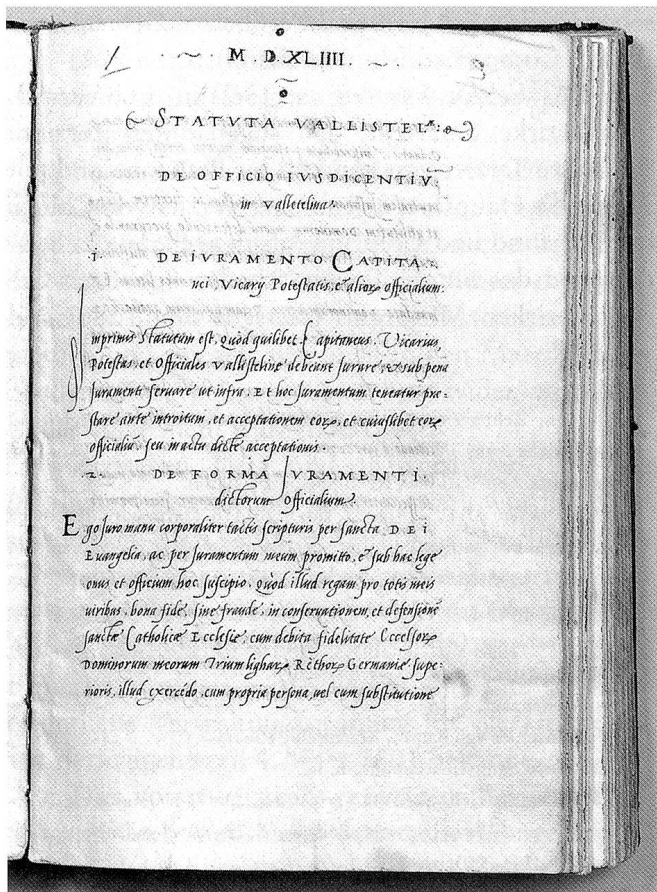 M D XLIIII.
STATVTA VALLISTEL.æ:
DE OFFICIO IVSDICENTIṼ
in Valletelina.
.1. DE IVRAMENTO CAPITA
nei Vicarij Potestatis, et alioꝝ officialium.
Inprimis Statutum est, quòd quilibet Capitaneus, Vicarius,
Potestas, et Officiales Vallisteline debeant Jurare, et sub pena
Juramenti servare ut infra. Et hoc Juramentum teneatur pre-
stare ante introitum, et acceptationem eoꝝ, et cuiuslibet eoꝝ
officialiũ, seu in actu dictæ acceptationis.
.2. DE FORMA IVRAMENTI
dictorum Officialium.
Ego Juro manu corporaliter tactis scripturis per sancta DEI
Evangelia, ac per Juramentum meum promitto, et sub hac lege
onus et officium hoc suscipio. Quòd illud regam pro totis meis
viribus, bona fide, sine fraude, in conservationem, et defensionẽ
sanctæ Catholicæ Ecclesiæ, cum debita fidelitate Eccelsoꝝ
Dominorum meorum Trium lighaꝝ Rethoꝝ Germaniæ supe-
rioris, illud exercẽdo, cum propria persona, vel cum substitutione